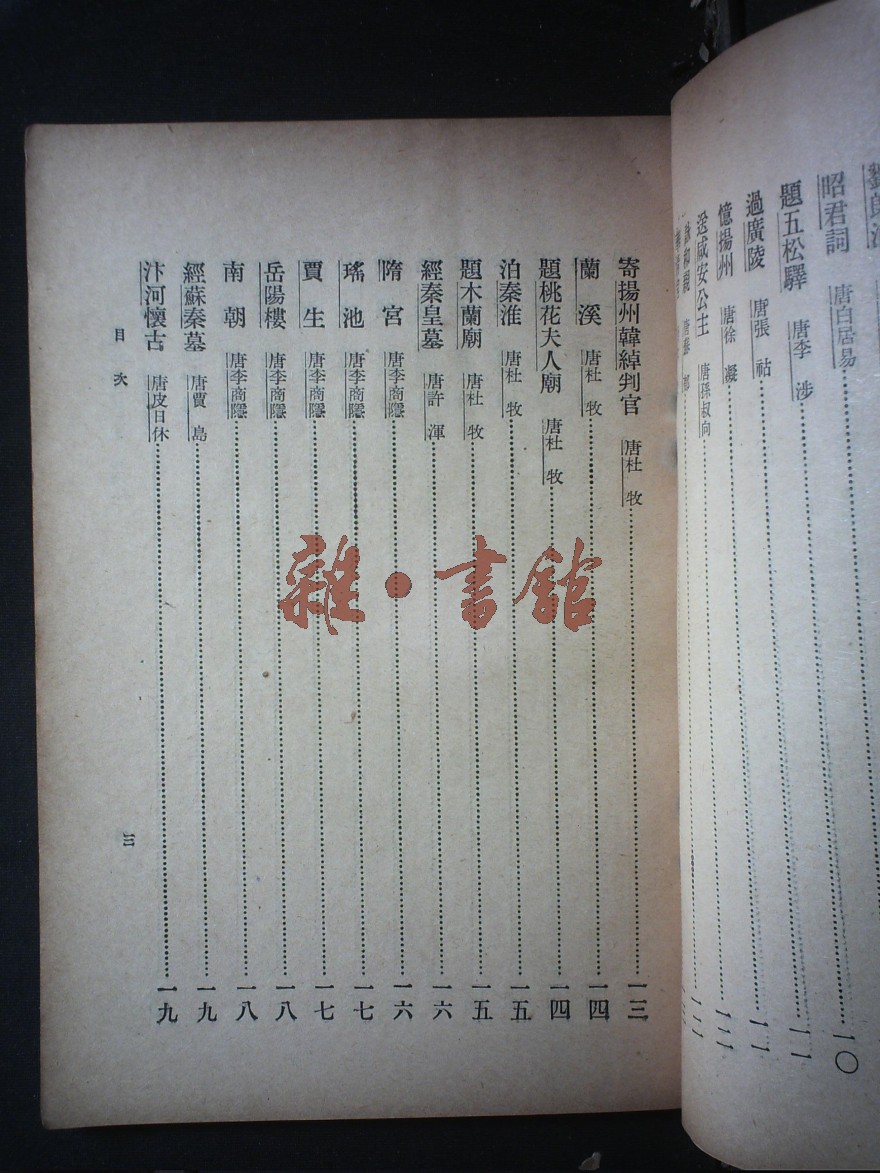 昭君詞 唐白居易 一〇
題五松驛 唐李涉 一一
過廣陵 唐張祜 一一
憶揚州 唐徐凝
送咸安公主 唐孫叔向
寄揚州韓綽判官 唐杜牧 一三
蘭溪 唐杜牧 一四
題桃花夫人廟 唐杜牧 一四
泊秦淮 唐杜牧 一五
題木蘭廟 唐杜牧 一五
經秦皇墓 唐許渾 一六
隋宮 唐李商隱 一六
瑤池 唐李商隱 一七
賈生 唐李商隱 一七
岳陽樓 唐李商隱 一八
南朝 唐李商隱 一八
經蘇秦墓 唐賈島 一九
汴河懷古 唐皮日休 一九
目次 三
雜·書館